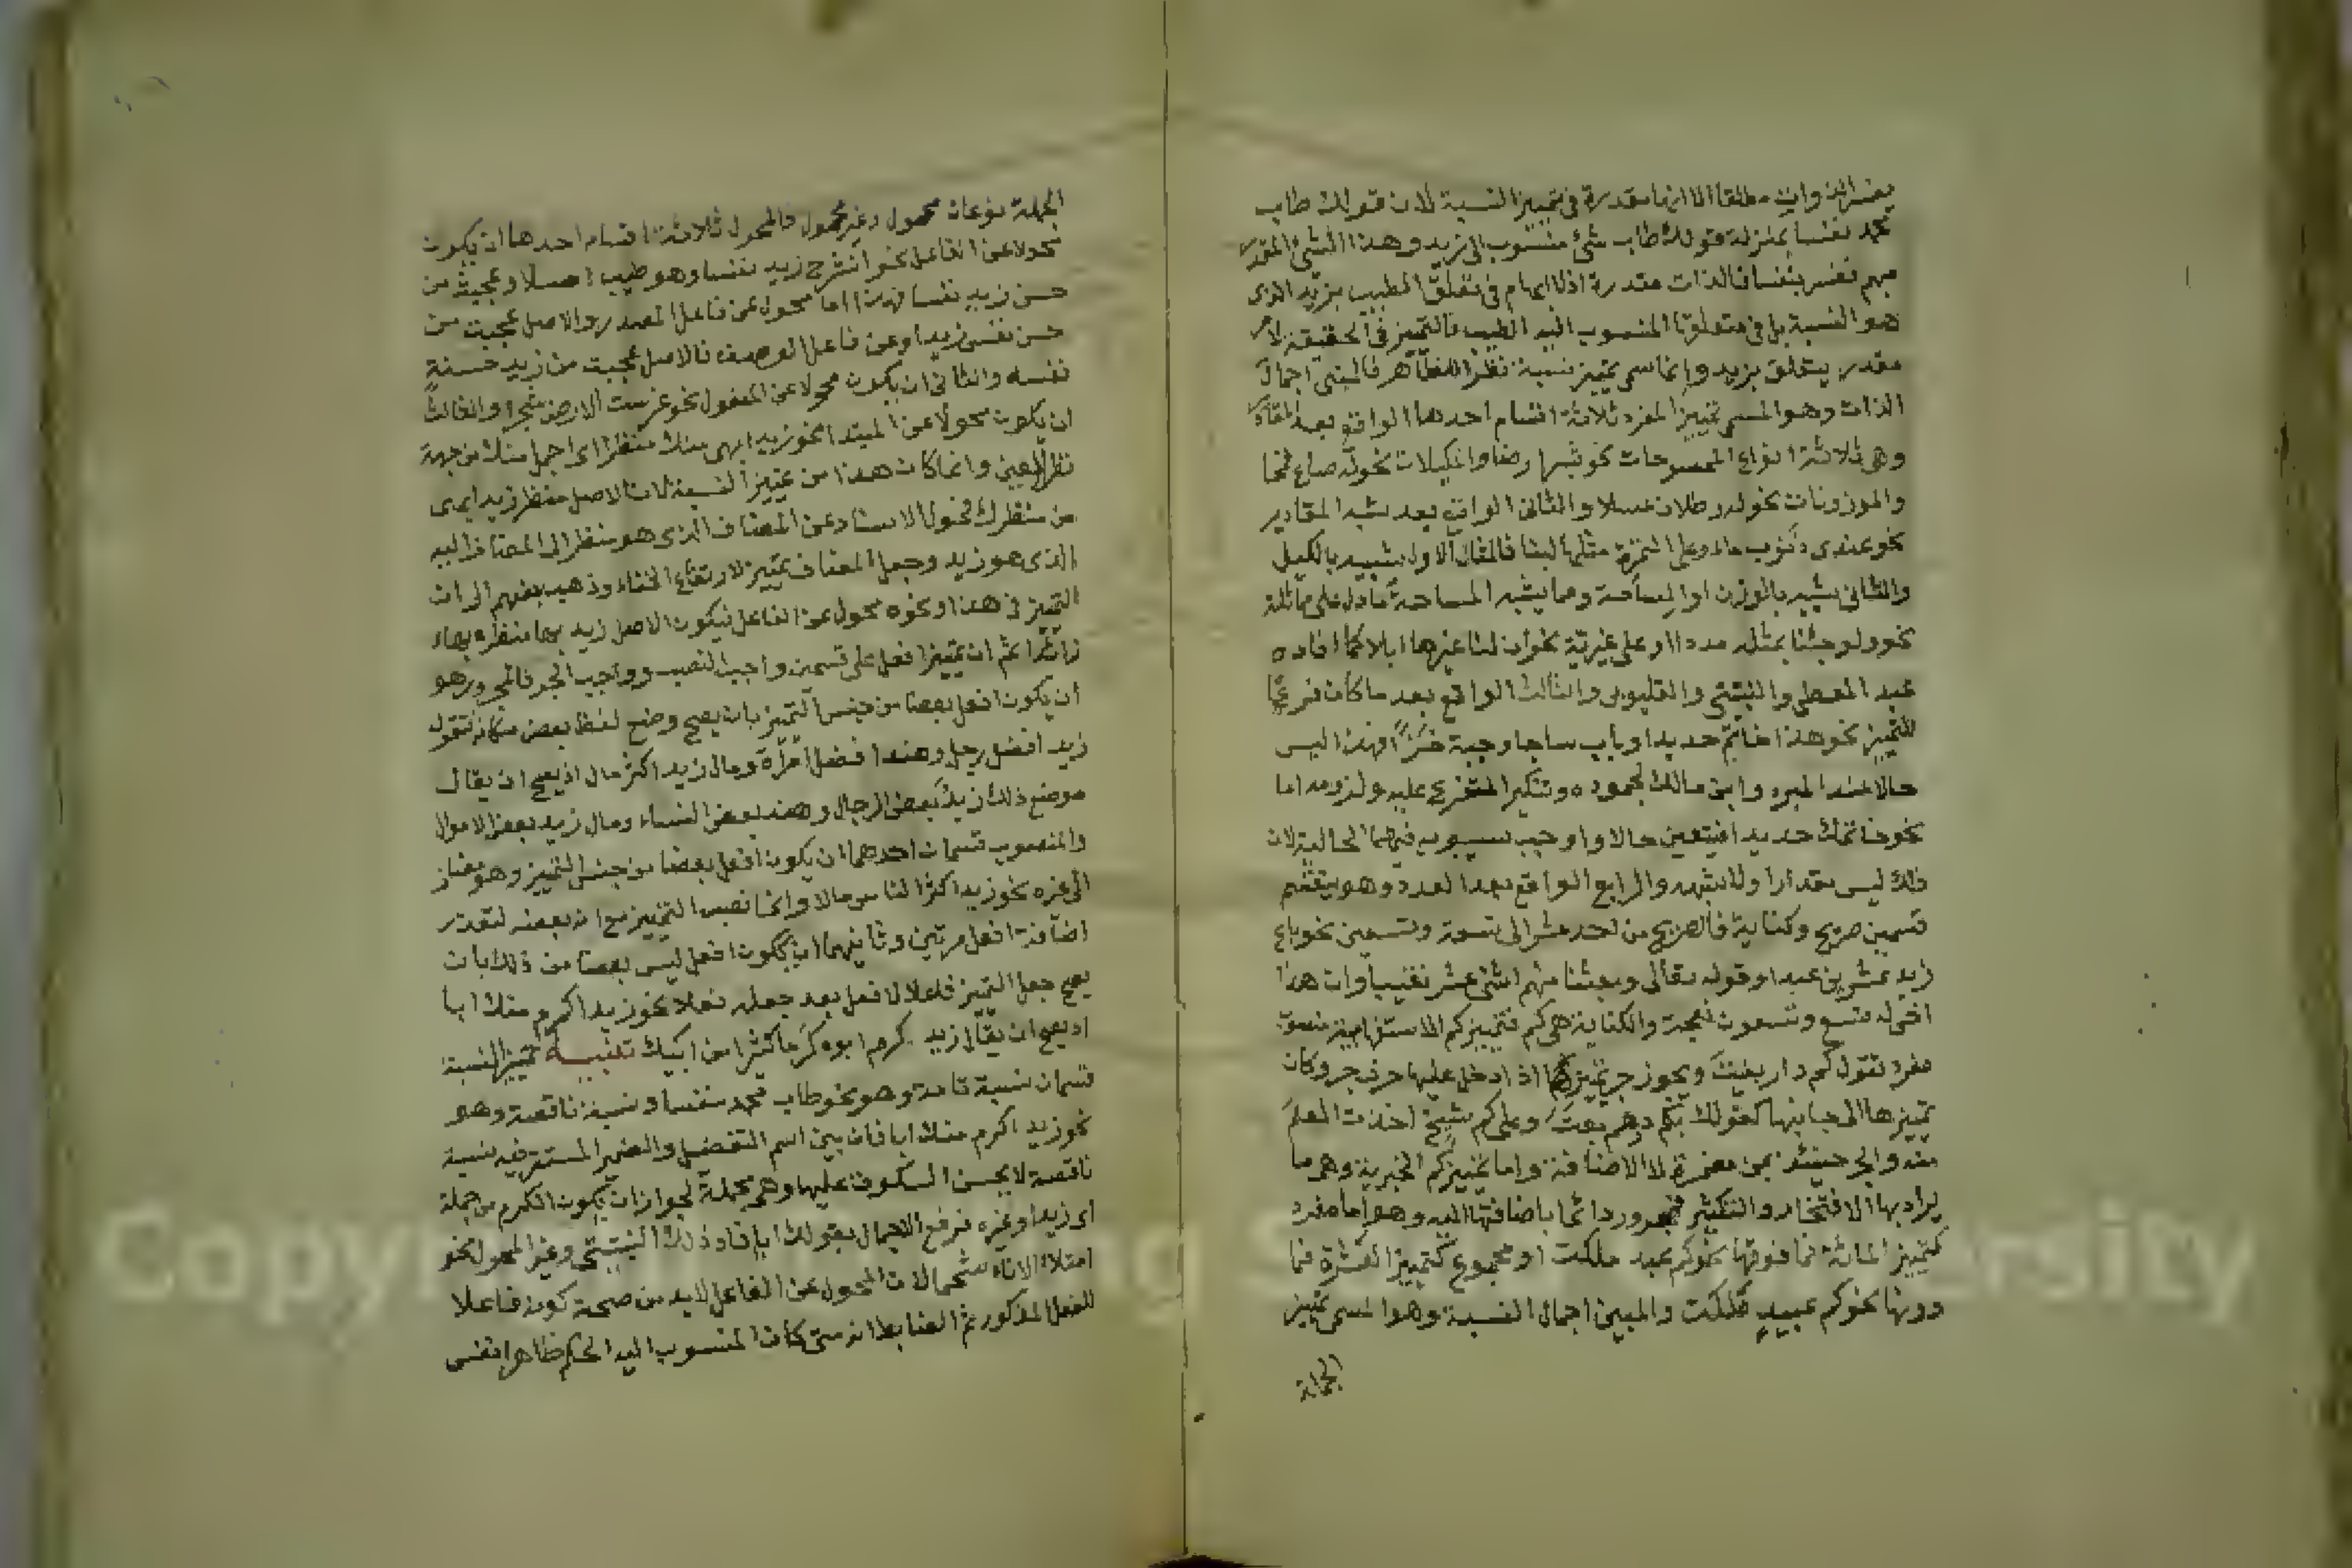 يفسر الذوات مطلقا الا انها مقدرة في تمييز النسبة لان قولك طاب
محمد نفسا بمنزلة قولك طاب شئ منسوب الى زيد وهذا الشئ المقدر
مبهم تفسر بنفسا فالذات مقدرة اذ لا ابهام في تعلق الطيب بزيد الذى
هو النسبة بل في متعلقها المنسوب اليه الطيب فالتمييز في الحقيقة لامر
مقدر يتعلق بزيد وانما سمى تمييز نسبة نظرا للظاهر فالمبين اجمال
الذات وهو المسمى تمييز المفرد ثلاثة اقسام احدها الواقع بعد المقادير
وهى ثلاثة انواع الممسوحات نحو شبر ارضا والمكيلات نحو له صاع قمحا
والموزونات نحو له رطلان عسلا والثانى الواقع بعد شبه المقادير
نحو عندى ذنوب ماء وعلى التمرة مثلها لبنا فالمثال الاول شبيه بالكيل
والثانى شبيه بالوزن او المساحة ومما يشبه المساحة ما دل على مماثلة
نحو ولو جئنا بمثله مددا او على غيرية نحو ان لنا غيرها ابلا كما افاده
عبد المعطى والنبتيتى والقليوبى والثالث الواقع بعد ما كان فرعا
للتمييز نحو هذا خاتم حديدا وباب ساجا وجبة خزا فهذا ليس
حالا عند المبرد وابن مالك لجموده وتنكير المتفرع عليه ولزومه اما
نحو خاتمك حديدا فيتعين حالا واوجب سيبويه فيهما الحالية لان
ذلك ليس مقدارا ولا شبهه والرابع الواقع بعد العدد وهو ينقسم
قسمين صريح وكناية فالصريح من احد عشر الى تسعة وتسعين نحو باع
زيد عشرين عبدا وقوله تعالى وبعثنا منهم اثنى عشر نقيبا وان هذا
اخى له تسع وتسعون نعجة والكناية هى كم فتمييز كم الاستفهامية منصوب
مفرد تقول كم دار بنيت ويجوز جر تمييزها اذا دخل عليها حرف جر وكان
تمييزها الى جانبها كقولك بكم درهم بعت وعلى كم شيخ اخذت العلم
منه والجر حينئذ بمن مضمرة لا الاضافة واما تمييز كم الخبرية وهى ما
يراد بها الافتخار والتكثير فمجرور دائما باضافتها اليه وهو اما مفرد
كتمييز المائة فما فوقها نحو كم عبد ملكت او مجموع كتمييز العشرة فما
دونها نحو كم عبيد ملكت والمبين اجمال النسبة وهو المسمى تمييز
الجملة
الجملة نوعان محول وغير محول فالمحول ثلاثة اقسام احدها ان يكون
محولا عن الفاعل نحو انشرح زيد نفسا وهو طيب اصلا وعجبت من
حسن زيد نفسا فهذا اما محول عن فاعل المصدر والاصل عجبت من
حسن نفس زيد او عن فاعل الوصف فالاصل عجبت من زيد حسنة
نفسه والثانى ان يكون محولا عن المفعول نحو غرست الارض شجرا والثالث
ان يكون محولا عن المبتدا نحو زيد ابهى منك منظرا اى اجمل منك من جهة
نظر العين وانما كان هذا من تمييز النسبة لان الاصل منظر زيد ابهى
من منظرك فحول الاسناد عن المضاف الذى هو منظر الى المضاف اليه
الذى هو زيد وجعل المضاف تمييزا لارتفاع الخفاء وذهب بعضهم الى ان
التمييز في هذا ونحوه محول عن الفاعل فيكون الاصل زيد بها منظره بهاء
زائدا ثم ان تمييز افعل على قسمين واجب النصب وواجب الجر فالمجرور هو
ان يكون افعل بعضا من جنس التمييز بان يصح وضع لفظ بعض مكانه فتقول
زيد افضل رجل وهند افضل امرأة ومال زيد اكثر مال اذ يصح ان يقال
موضع ذلك زيد بعض الرجال وهند بعض النساء ومال زيد بعض الاموال
والمنصوب قسمان احدهما ان يكون افعل بعضا من جنس التمييز وهو مضاف
الى غيره نحو زيد اكثر الناس مالا وانما نصب التمييز مع انه بعضه لتعذر
اضافة افعل مرتين وثانيهما ان يكون افعل ليس بعضا من ذلك بان
يصح جعل التمييز فاعلا لافعل بعد جعله فعلا نحو زيد اكرم منك ابا
اذ يصح ان يقال زيد كرم ابوه كرما كثيرا من ابيك تنبيه تمييز النسبة
قسمان نسبة تامة وهو نحو طاب محمد نفسا ونسبة ناقصة وهو
نحو زيد اكرم منك ابا فان بين اسم التفضيل والضمير المستتر فيه نسبة
ناقصة لا يحسن السكوت عليها وهى مجملة لجواز ان يكون الكرم من جملة
اى زيد او غيره فرفع الاجمال بقولك ابا فاد ذلك النبتيتى وغير المحول نحو
امتلاء الاناء شحما لان المحول عن الفاعل لابد من صحة كونه فاعلا
للفعل المذكور ثم الضابط انه متى كان المنسوب اليه الحكم ظاهرا نفس